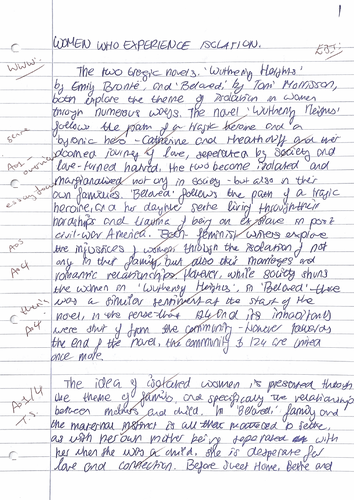 1
WOMEN WHO EXPERIENCE ISOLATION.
EBI:
WWW:
The two tragic novels, 'Wuthering Heights'
by Emily Brontë, and 'Beloved', by Toni Morrisson,
both explore the theme of isolation in women
through numerous ways. The novel 'Wuthering Heights'
follows the path of a tragic heroine and a
byronic hero - Catherine and Heathcliff and their
doomed journey of love, seperated by society and
love-turned hatred. The two become isolated and
marginalised not only in society - but also in their
own families. 'Beloved' follows the path of a tragic
heroine, and her daughter Sethe living through their
hardships and trauma of being an ex-slave in post
civil-war America. Both feminist writers explore
the injustices of women through the isolation of not
only in their family, but also their marriages and
romantic relationships. However, while society shuns
the women in 'Wuthering Heights', in 'Beloved' there
was a similar sentiment at the start of the
novel, in the sense that 124 and its inhabitants
were shut off from the community - however towards
the end of the novel, the community & 124 are united
once more.
The idea of isolated women is presented through
the theme of family, and specifically the relationship
between mothers and child. In 'Beloved', family and
the maternal instinct is all that mattered to Sethe,
as with her own mother being separated with
her when she was a child, she is desperate for
love and connection. Before Sweet Home, Sethe and
Ao1
Ao3
Ao4
thesis
Ao4
Ao1/4
T.S.